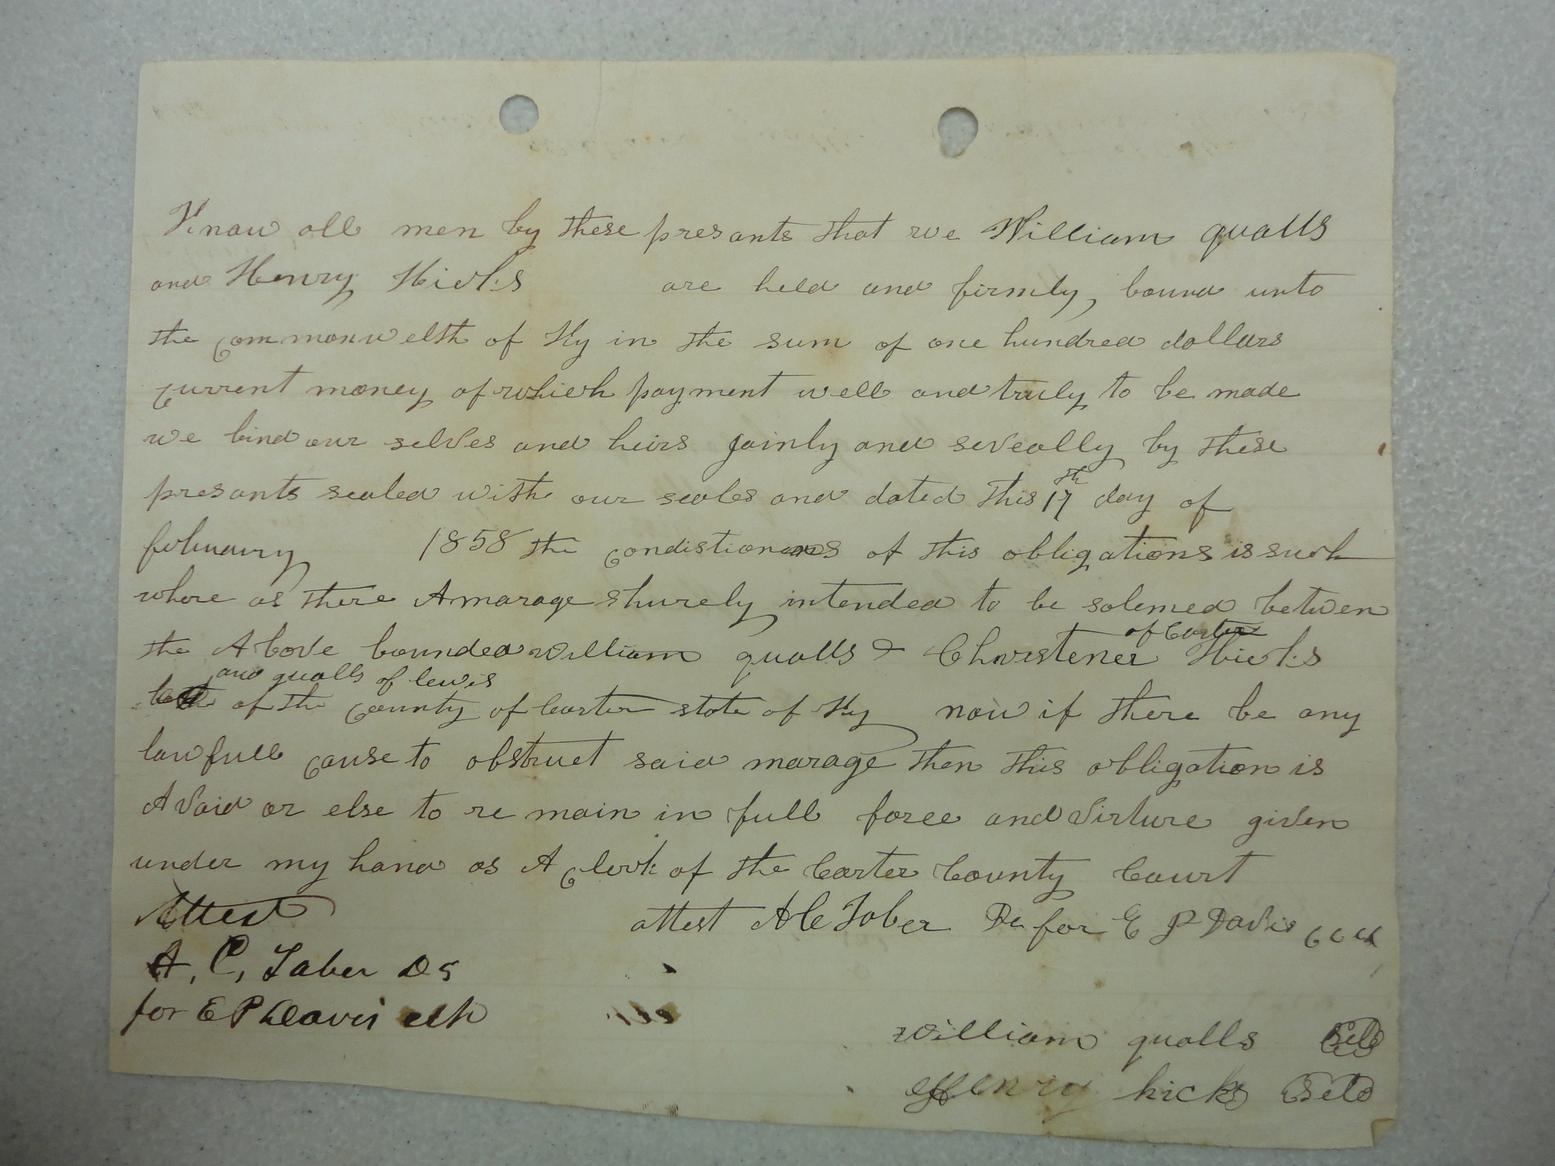 Know all men by these presants that we William qualls
and Henry Hicks are held and firmly bound unto
the commonwelth of Ky in the sum of one hundred dollars
current money of which payment well and truly to be made
we bind our selves and heirs jainly and seveally by these
presants sealed with our seales and dated this 17th day of
february 1858 the condistionons of this obligations is such
where as there A marage shurely intended to be solemed betwen
of Carter
the Above bounded william qualls & Christener Hicks
and qualls of lewis
of the county of Carter state of Ky now if there be any
lawfull cause to obstruct said marage then this obligation is
A void or else to re main in full force and virture given
under my hand as A clerk of the Carter County Court
Attest attest A C Tober Dc for E P Davis CCC
A, C, Taber Dc
for E P Davis clk
william qualls
Henry hicks